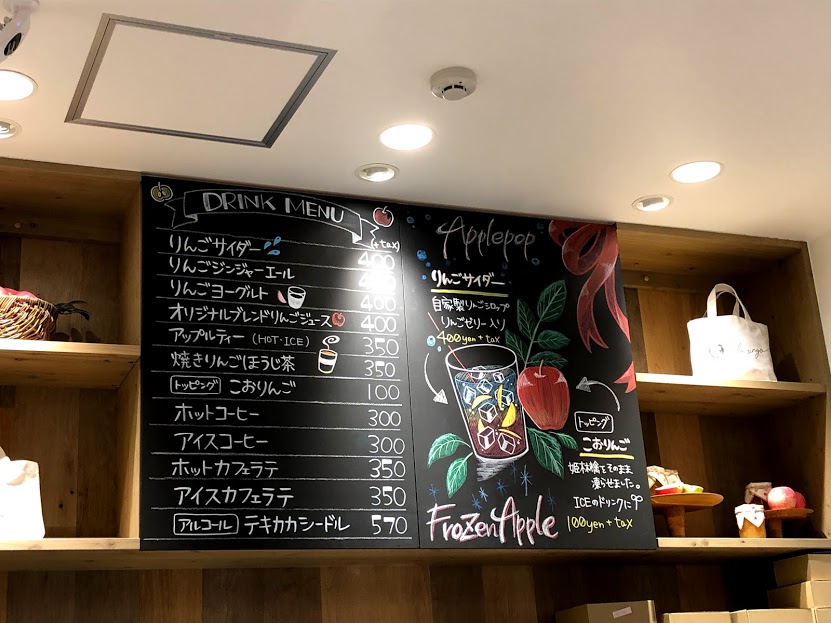 DRINK MENU
(+tax)
りんごサイダー 400
りんごジンジャーエール 400
りんごヨーグルト 400
オリジナルブレンドりんごジュース 400
アップルティー (HOT・ICE) 350
焼きりんごほうじ茶 350
トッピング こおりんご 100
ホットコーヒー 300
アイスコーヒー 300
ホットカフェラテ 350
アイスカフェラテ 350
アルコール テキカカシードル 570
Applepop
りんごサイダー
自家製りんごシロップ
りんごゼリー入り
400yen+tax
トッピング
こおりんご
姫林檎をそのまま
凍らせました。
ICEのドリンクに
100yen+tax
FrozenApple